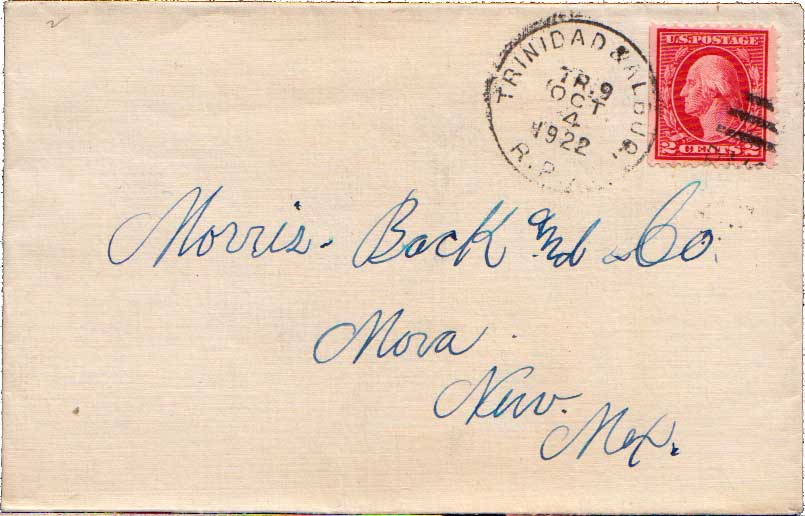 TRINIDAD & ALBUQ.
TR.9
OCT
4
1922
R.P.O.
U.S. POSTAGE
2 CENTS 2
Morris. Back and Co.
Mora
New. Mex.